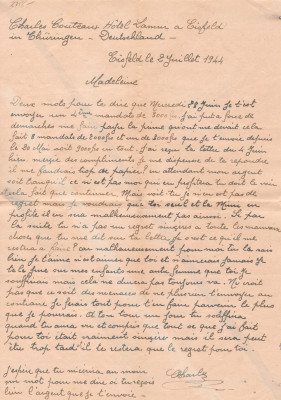 Charles Couteaux Hôtel Lamm a Eisfeld
in Thüringen - Deutschland -
Eisfeld le 2 Juillet 1944
Madeleine
Deux mots pour te dire que Mercredi 28 Juin je t'est
envoyer mon mandats de 2000frs. j'ai put a force de
demarches me faire payer la prime qu'on me devait cela
fait 2 mandats de 2000frs et un de 3000frs que je t'envoie depuis
le 20 Mai soit 7000frs en tout. J'ai reçu ta lettre du 4 Juin
hieu merçie des compliments je me dispense de ta repondre
il me faudrait trop de papier! en attendant mon argent
voit tu ce n'est pas moi qui en profitera tu soit tu vois
cela fait que continuer. Mais voit tu je n'en est pas de
regret mais je voudrais que toi seul et la Mimi en
profite il en sera malheureusement pas ainsi. Si par
la suite tu n'a pas un regret singres a toute les mauvaise
chose que tu me dit dans ta lettre, je crois ce qu'il me
restera a faire! car malheureusement pour moi tu la sais
bien je t'aime n'est aimer que toi et n'aimerais jamais je
te le jure sur mes enfants une autre femme que toi je
souffrirai mais cela ne durera pas toujours va. Ne croit
pas que ce soit des menaces de ne plus rien t'envoyer au
contraire je ferais tout pour t'en faire parvenir le plus
que je pourrais. A ton tour un jour tu souffrira
quand tu aura vu et compris que tout ce que j'ai fait
pour toi etait vraiment singres mais il sera peut
être trop tard il le restera que le regret pour toi.
J'espere que tu m'ecrira au moins
un mot pour me dire si tu reçois
bien l'argent que je t'envoie -
Charles